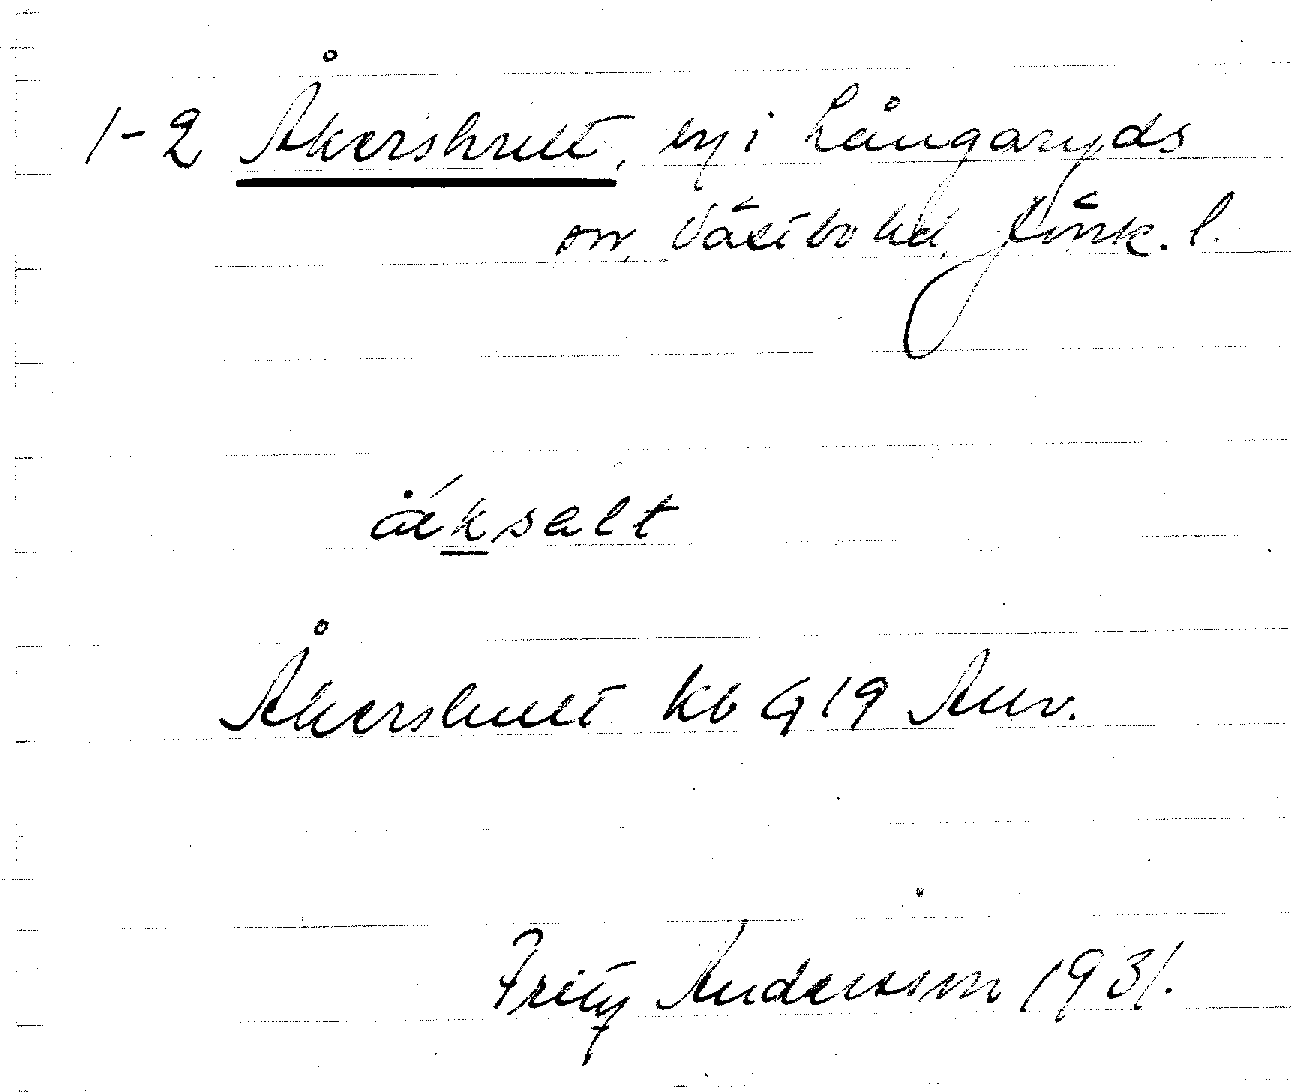 1-2 Åkershult, by i Långaryds
sn, Västbo hd, Jönk. l.
åksalt
Åkershult kb G 19 Anv.
Fritz Andersson 1931.